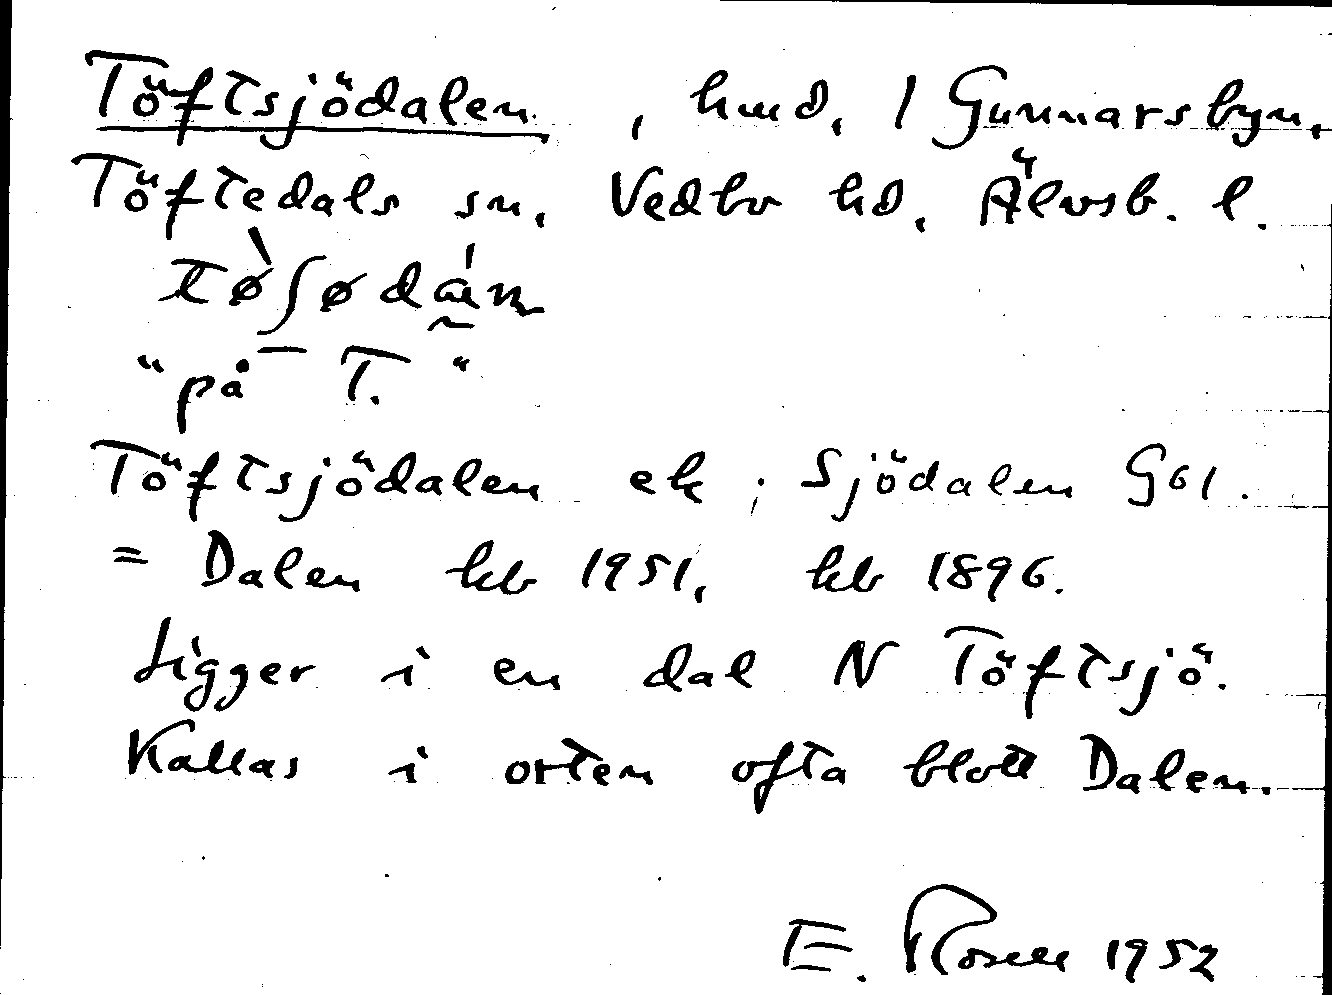 Töftsjödalen, hmd, 1 Gunnarsbyn,
Töftedals sn, Vedbo hd, Älvsb. l.
tø̀ʃødám
"på T."
Töftsjödalen ek; Sjödalen G61.
= Dalen kb 1951, kb 1896.
Ligger i en dal N Töftsjö.
Kallas i orten ofta blott Dalen.
E. Rosell 1952